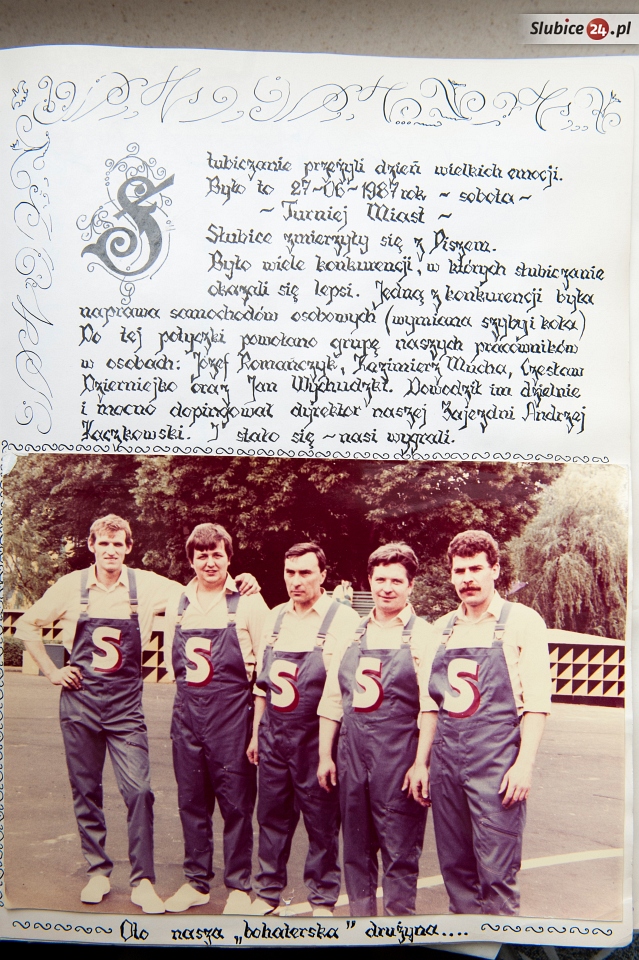 Slubice24.pl
Słubiczanie przeżyli dzień wielkich emocji.
Było to 27-06-1987 rok ~ sobota ~
~ Turniej Miast ~
Słubice zmierzyły się z Piszem.
Było wiele konkurencji, w których słubiczanie
okazali się lepsi. Jedną z konkurencji była
naprawa samochodów osobowych (wymiana szyby i koła)
Do tej potyczki powołano grupę naszych pracowników
w osobach: Józef Romańczyk, Kazimierz Mucha, Czesław
Dzierniejko oraz Jan Wychudzki. Dowodził im dzielnie
i mocno dopingował dyrektor naszej Zajezdni Andrzej
Kaczkowski. I stało się ~ nasi wygrali.
S S S S S
Oto nasza „bohaterska" drużyna....